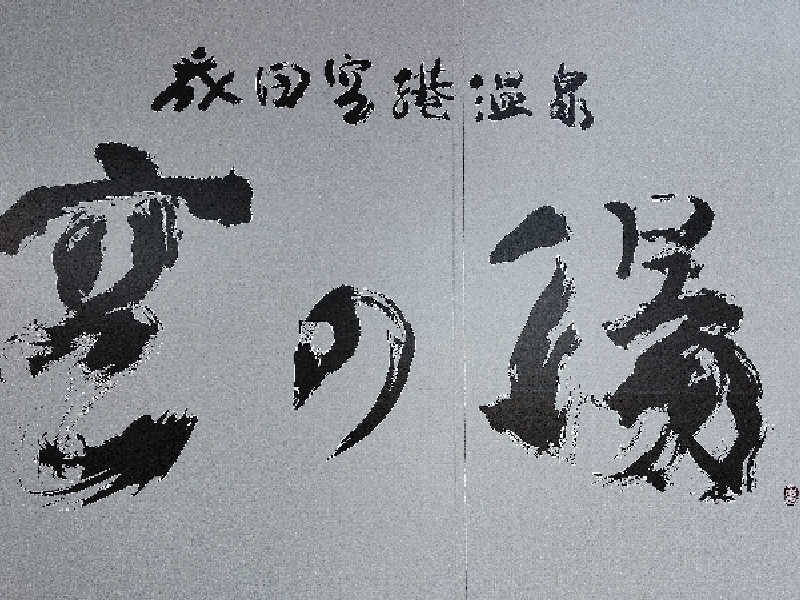 成田空港温泉
空の湯